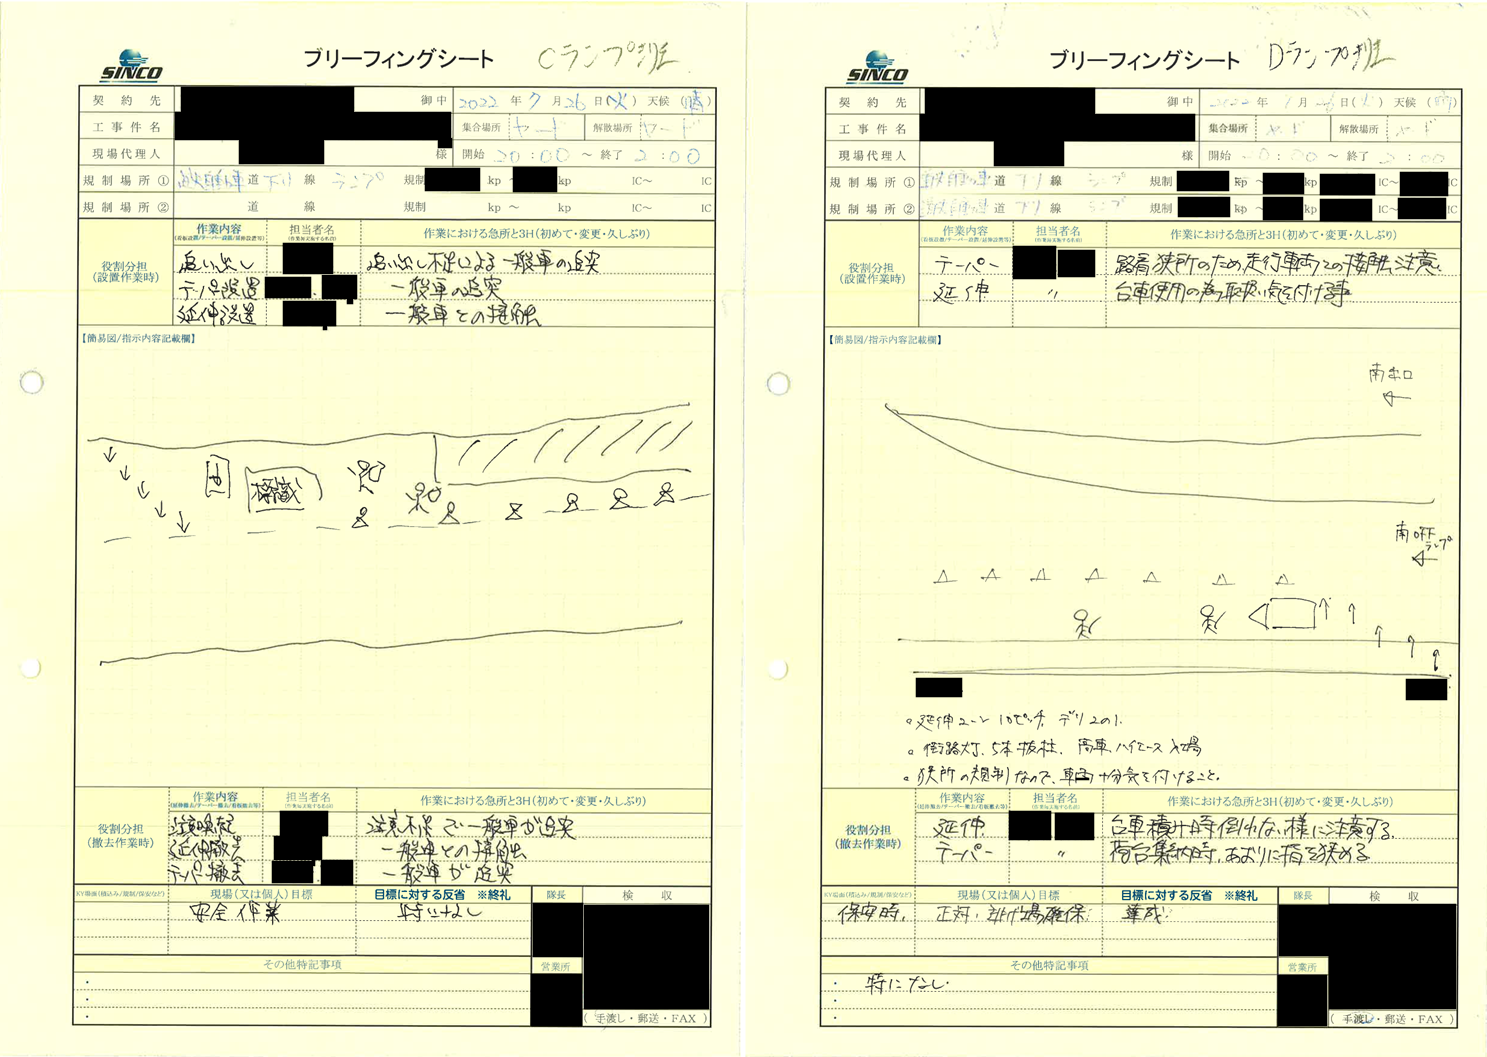 SINCO
ブリーフィングシート Cランプ班
契約先 御中 2022年7月26日(火) 天候(晴)
工事件名 集合場所 ヤード 解散場所 ヤード
現場代理人 様 開始 20:00 ～ 終了 2:00
規制場所① 道 下り 線 ランプ 規制 kp ～ kp IC～ IC
規制場所② 道 線 規制 kp ～ kp IC～ IC
役割分担
(設置作業時)
作業内容 担当者名 作業における急所と3H(初めて・変更・久しぶり)
追い出し 追い出し不足による一般車の追突
テーパ設置 一般車の追突
延伸設置 一般車との接触
【簡易図/指示内容記載欄】
標識
役割分担
(撤去作業時)
作業内容 担当者名 作業における急所と3H(初めて・変更・久しぶり)
注意喚起 注意不足で一般車が追突
延伸撤去 一般車との接触
テーパ撤去 一般車が追突
現場(又は個人)目標 目標に対する反省 ※終礼 隊長 検収
安全作業 特になし
その他特記事項 営業所
(手渡し・郵送・FAX)
SINCO
ブリーフィングシート Dランプ班
契約先 御中 2022年 月 26日(火) 天候(晴)
工事件名 集合場所 ヤード 解散場所 ヤード
現場代理人 様 開始 20:00 ～ 終了 2:00
規制場所① 道 下り 線 ランプ 規制 kp ～ kp IC～ IC
規制場所② 道 下り 線 ランプ 規制 kp ～ kp IC～ IC
役割分担
(設置作業時)
作業内容 担当者名 作業における急所と3H(初めて・変更・久しぶり)
テーパー 路肩狭所のため、走行車両との接触注意。
延伸 〃 台車使用の為、取扱い気を付ける事
【簡易図/指示内容記載欄】
南本口
ランプ
。延伸2ーン 10ピッチ、デリ2の1.
。街路灯、5本抜柱、高車、ハイエース 入場
。狭所の規制なので、車両十分気を付けること。
役割分担
(撤去作業時)
作業内容 担当者名 作業における急所と3H(初めて・変更・久しぶり)
延伸 台車積み時倒れない様に注意する。
テーパー 〃 荷台集納時、あおりに指を狭める
現場(又は個人)目標 目標に対する反省 ※終礼 隊長 検収
保安時、 正対・逃げ場確保 達成
その他特記事項 営業所
・特になし
(手渡し・郵送・FAX)